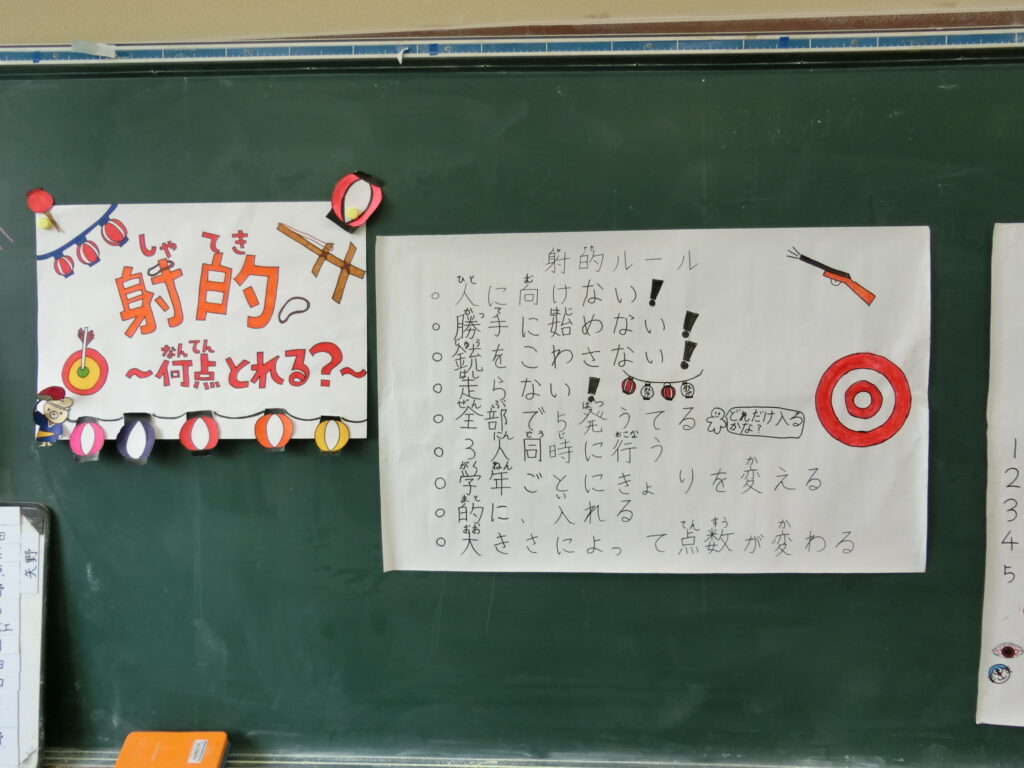 しゃてき
射的
なんてん
～何点とれる？～
射的ルール
○人に向けない！
○勝手に始めない！
○銃をこわさない！
○走らない！
○全部で5発うてる
どれだけ入るかな？
○3人同時に行う
○学年ごとにきょりを変える
○的に、入れる
○大きさによって点数が変わる
矢野
1
2
3
4
5